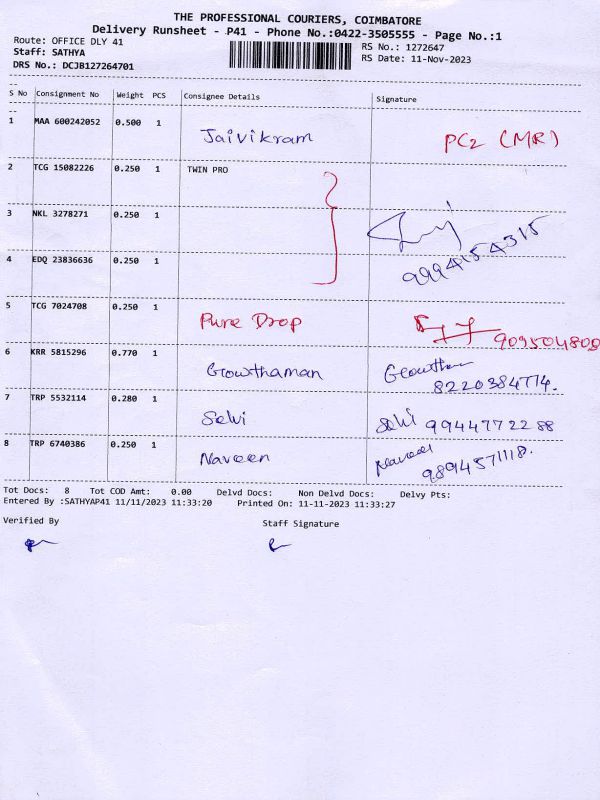 THE PROFESSIONAL COURIERS, COIMBATORE
Delivery Runsheet - P41 - Phone No.:0422-3505555 - Page No.:1
Route: OFFICE DLY 41
Staff: SATHYA
DRS No.: DCJB127264701
RS No.: 1272647
RS Date: 11-Nov-2023
S No Consignment No Weight PCS Consignee Details Signature
1 MAA 600242052 0.500 1 Jaivikram PC2 (MR)
2 TCG 15082226 0.250 1 TWIN PRO
3 NKL 3278271 0.250 1
4 EDQ 23836636 0.250 1 9994154315
5 TCG 7024708 0.250 1 Pure Drop 909504809
6 KRR 5815296 0.770 1 Gowthaman Gowtham 8220384774.
7 TRP 5532114 0.280 1 Selvi Selvi 9944772288
8 TRP 6740386 0.250 1 Naveen Naveen 9894571118.
Tot Docs: 8 Tot COD Amt: 0.00 Delvd Docs: Non Delvd Docs: Delvy Pts:
Entered By :SATHYAP41 11/11/2023 11:33:20 Printed On: 11-11-2023 11:33:27
Verified By Staff Signature